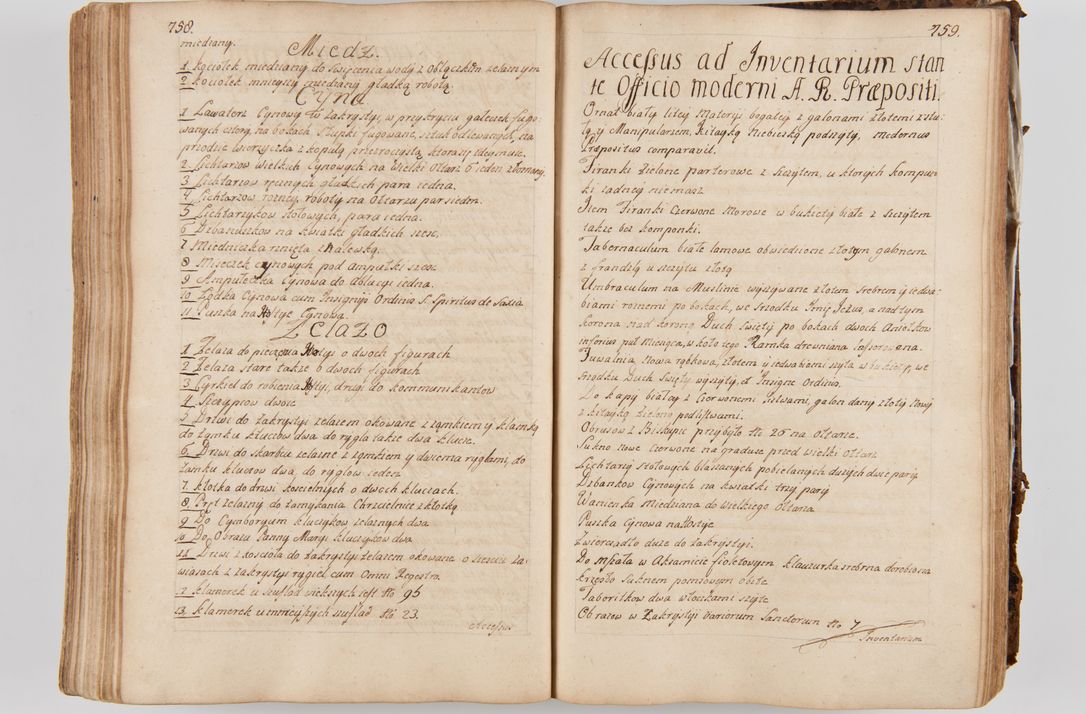 758.
miedziany.
Miedz.
1 Kociołek miedziany do swięcenia wody z Obłączkiem zelaznym
2 Kociołek mnieyszy miedziany gładką robotą
Cyna
1 Lawaterz Cynowy w Zakrystyi, w przykryciu gałeczek fugo-
wanych cztery, na bokach Słupki fugowane, sztuk odlewanych, na
przodzie Osobyczka z kopułą przezroczystą
2 Lichtarzow wielkich Cynowych na wielki Ołtarz 6 ieden złomany
3 Lichtarzow ręcznych gładkich para iedna.
4 Lichtarzow rozney roboty na Ołtarzu par siedm.
5 Lichtarzykow stołowych, para iedna.
6 Dzbanuszkow na kwiatki gładkich szesc.
7 Miedniczka rznięta z nalewką.
8 Miseczek cynowych pod ampułki szesc
9 Ampułeczka Cynowa do ablucyi iedna.
10 Łodka Cynowa cum Insignijs Ordinis S. Spiritus de Saxia
11 Puszka na Hostye Cynowa.
Zelazo
1 Zelaza do pieczenia Hostyi o dwoch figurach
2 Zelaza stare także o dwoch figurach
3 Cyrkiel do robienia Hostyi, drugi do kommunikantow
4 Szczypcow dwoie
5 Drzwi do Zakrystyi zelazem okowane z zamkiem y klamką
do zamku kluczow dwa do rygla także dwa klucze.
6 Drzwi do skarbcu zelazne z zamkiem y dwiema ryglami, do
zamku kluczow dwa, do ryglow ieden
7 Kłotka do drzwi koscielnych o dwoch kluczach.
8 Pręt zelazny do zamykania Chrzcielnice z kłotką
9 Do Cymboryum kluczykow zelaznych dwa
10 Do Obrazu Panny Maryi kluczykow dwa
11 Drzwi z koscioła do zakrystyi zelazem okowane o szesciu za-
wiasach z zakrystyi rygiel cum Omni Regestro.
12 Klamerek u szuflad wiekszych iest No 95
13 Klamerek u mnieyszych szuflad No 23.
Accessus
759.
Accessus ad Inventarium stan
te Officio moderni A. R. Præpositi.
Ornat biały litey Materyi bogatey z galonami złotemi z stu-
łą y Manipularzem, Kitayką Niebieską podszyty, modernus
Præpositus comparavit.
Firanki Zielone parterowe z szczytem, u ktorych kompan
ki zadney niemasz
Item Firanki Czerwone Morowe w bukiety białe z szczytem
także bez komponki.
Tabernaculum białe lamowe obwiedzione złotym galonem
z frandzlą u szczytu złotą
Umbraculum na Muslinie wyszywane złotem srebrem y iedwa-
biami roznemi po bokach, we srzodku Imię Jezus, a nad tym
Korona nad koroną Duch Swięty po bokach dwoch Aniołkow
inferius puł Miesiąca, w koło iego Ramka drewniana lasserowana.
Tuwalnia Nowa rąbkowa, złotem y iedwabiemi szyta w bukiety, we
srzodku Duch Swięty wyszyty, et Insigne Ordinis.
Do kapy białey z Czerwonemi Pelwami, galon dany złoty Nowy
z kitayką zieloną podlistwami.
Obrusow z Biskupic przybyło No 26 na Ołtarze.
Sukno nowe Czerwone na gradusie przed wielki Ołtarz
Lichtarzy stołowych blaszanych pobielanych duzych dwie pary
Dzbankow Cynowych na kwiatki trzy pary
Wanienka miedziana do Wielkiego Ołtarza
Puszka Cynowa na Hostye
Zwierciadło duże do zakrystyi.
Do Mszału w Aksamicie fioletowym klauzurka srebrna dorobiona
Krzesło suknem ponsowym obite
Taboritkow dwa włoczkami szyte
Obrazow w Zakrystyi variorum Sanctorum No 7
Inventarium